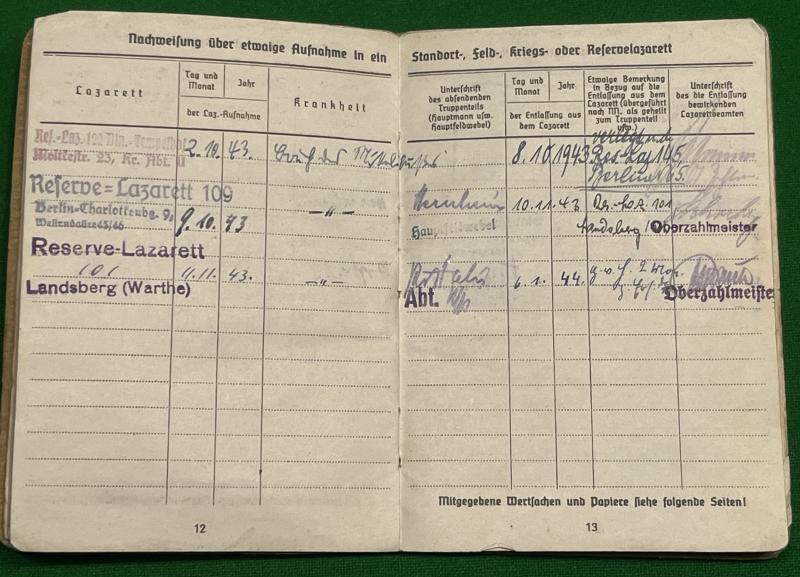 Nachweisung über etwaige Aufnahme in ein
Lazarett
Tag und
Monat
Jahr
der Laz.-Aufnahme
Krankheit
Res.-Laz. 122 Bln.-Tempelhof
Moltkestr. 23, Kr. Abt. II
2. 10. 43.
Bruch des
Reserve=Lazarett 109
Berlin-Charlottenbg. 9,
9. 10. 43
—„—
Reserve-Lazarett
101
11. 11. 43.
—„—
Landsberg (Warthe)
12
Standort-, Feld-, Kriegs- oder Reservelazarett
Unterschrift
des absendenden
Truppenteils
(Hauptmann usw.
Hauptfeldwebel)
Tag und
Monat
Jahr
der Entlassung aus
dem Lazarett
Etwaige Bemerkung
in Bezug auf die
Entlassung aus dem
Lazarett (übergeführt
nach NN. als geheilt
zum Truppenteil
Unterschrift
des die Entlassung
bewirkenden
Lazarettbeamten
8. 10 1943
Res-Laz 145
Berlin
10. 11. 43
Res.-Laz. 101
Hauptfeldwebel
Landsberg
Oberzahlmeister
6. 1. 44.
Abt.
Oberzahlmeister
Mitgegebene Wertsachen und Papiere siehe folgende Seiten!
13